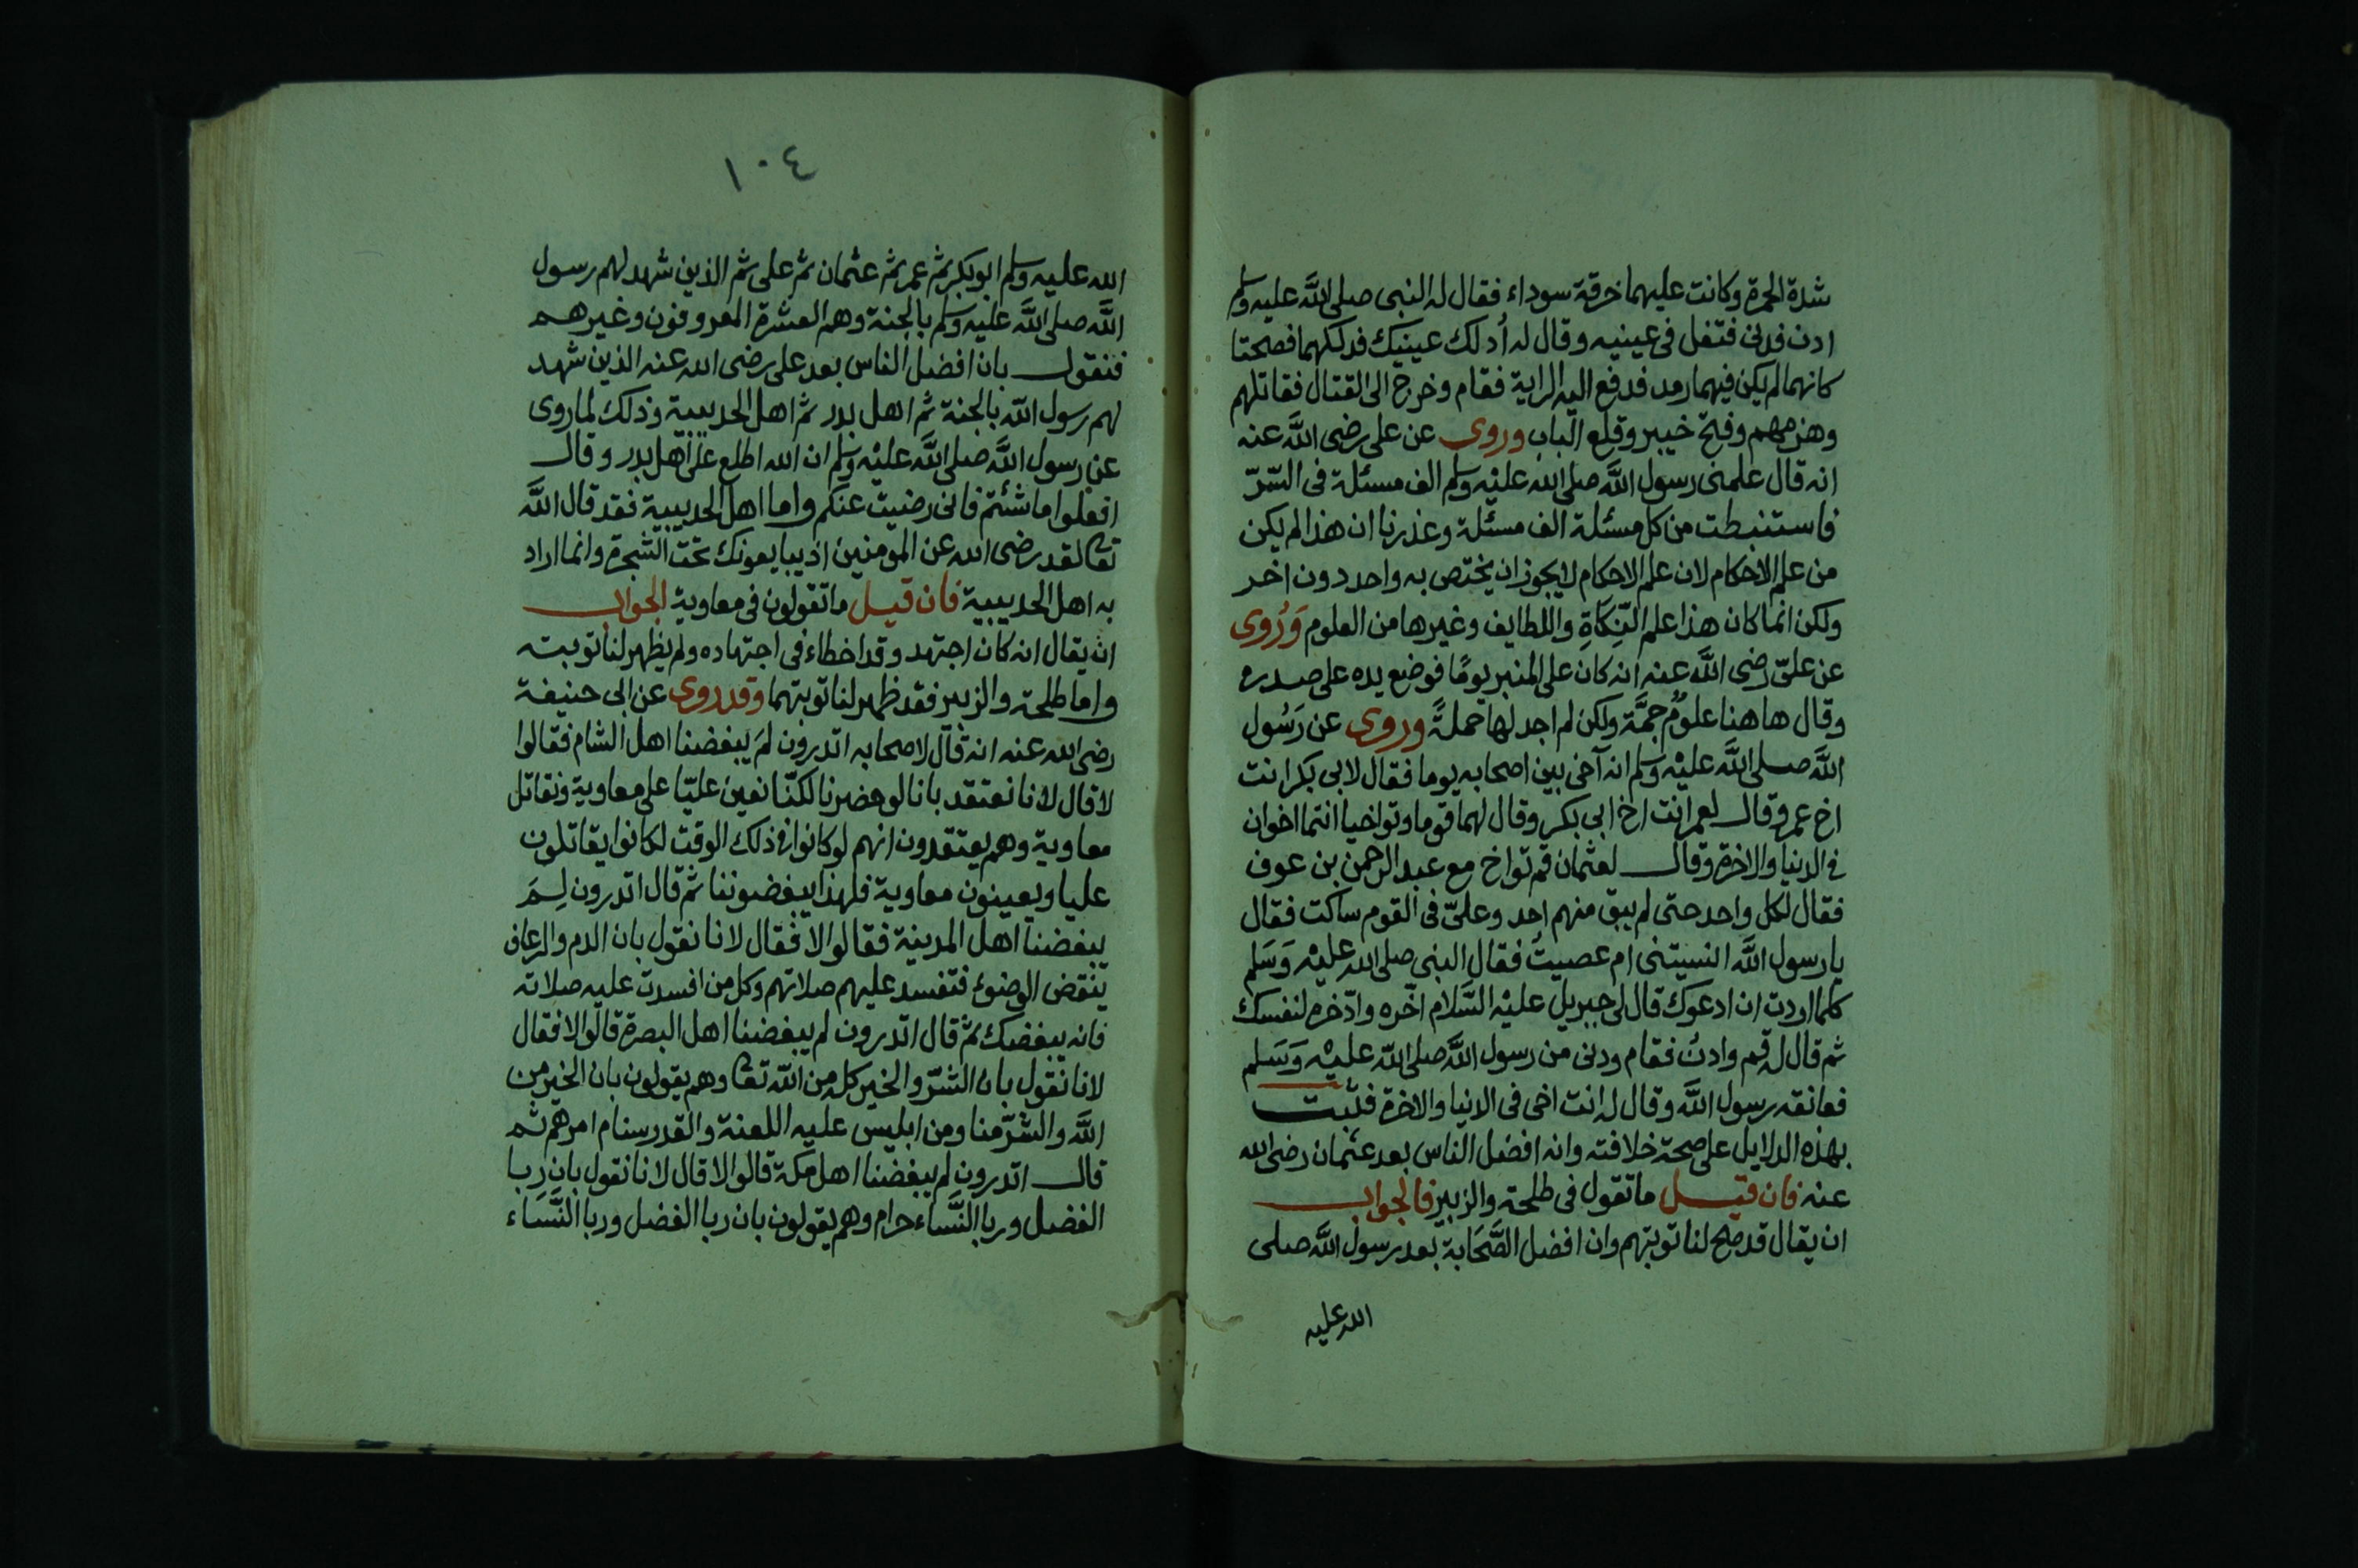 شدة الحمرة وكانت عليهما خرقة سوداء فقال له النبى صلى اللَّه عليه وسلم
ادن فدنى فتفل فى عينيه وقال له أدلك عينيك فدلكهما فصحتا
كانهما لم يكن فيهما رمد فدفع اليه الراية فقام وخرج الى القتال فقاتلهم
وهزمهم وفتح خيبر وقلع الباب وروى عن على رضى اللَّه عنه
انه قال علمنى رسول اللَّه صلى الله عليْه وسلم الف مسئلة فى السّرّ
فاستنبطت من كل مسئلة الف مسئلة وعذرنا ان هذا لم يكن
من علم الاحكام لان علم الاحكام لا يجوز ان يختص به واحد دون اخر
ولكن انما كان هذا علم النِّكَاةِ واللطايف وغيرها من العلوم وَرُوى
عن علىّ رضى اللَّه عنه انه كان على المنبر يومًا فوضع يده على صدره
وقال هاهنا علومٌ جمَّة ولكن لم اجد لها حملةً وروى عن رَسُول
اللَّه صلى اللَّه عليْه وسلم انه آخى بين اصحابه يوما فقال لابى بكر انت
اخ عمر وقال لعمر انت اخ ابى بكر وقال لهما قوما وتواخيا انتما اخوان
فى الدنيا والاخرة وقال لعثمان قم تواخ مع عبد الرحمن بن عوف
فقال لكل واحد حتى لم يبق منهم احد وعلىّ فى القوم ساكت فقال
يا رسول اللَّه انسيتنى ام عصيتُ فقال النبى صلى الله عليْه وَسَلم
كلما اردت ان ادعوك قال لى جبريل عليْه السَّلام اخّره وادّخره لنفسك
ثم قال له قم وادنُ فقام ودنى من رسول اللَّه صلى اللّه عليْه وَسَلم
فعانقه رسول اللَّه وقال له انت اخى فى الانيا والاخرة فثبت
بهذه الدلايل على صحة خلافته وانه افضل الناس بعد عثمان رضى الله
عنه فان قيل ما تقول فى طلحة والزبير فالجواب
ان يقال قد صح لنا توبتهم وان افضل الصَّحَابة بعد رسول اللَّه صلى
الله عليه
١٠٤
الله عليه وسلم ابوبكر ثم عمر ثم عثمان ثم على ثم الذين شهد لهم رسول
اللَّه صلى اللَّه عليه وسلم بالجنة وهم العشرة المعروفون وغيرهم
فنقول بان افضل الناس بعد على رضى الله عنه الذين شهد
لهم رسول اللّه بالجنة ثم اهل بدر ثم اهل الحديبية وذلك لما روى
عن رسول اللَّه صلى اللَّه عليْه وسلم ان الله اطلع على اهل بدر وقال
افعلوا ما شئتم فانى رضيت عنكم واما اهل الحديبية فقد قال اللَّه
تعا لقد رضى الله عن المؤمنين اذ يبايعونك تحت الشجرة وانما اراد
به اهل الحديبية فان قيل ما تقولون فى معاوية الجواب
ان يقال انه كان اجتهد وقد اخطاء فى اجتهاده ولم يظهر لنا توبته
واما طلحة والزبير فقد ظهر لنا توبتهما وقد روى عن ابى حنيفة
رضى الله عنه انه قال لاصحابه اتدرون لمَ يبغضنا اهل الشام فقالوا
لا قال لانا نعتقد بانا لو حضرنا لكنّا نعين عليّا على معاوية ونقاتل
معاوية وهم يعتقدون انهم لو كانوا فى ذلك الوقت لكانوا يقاتلون
عليا ويعينون معاوية فلهذا يبغضوننا ثم قال اتدرون لِمَ
يبغضنا اهل المدينة فقالوا لا فقال لانا نقول بان الدم والرعاف
ينقض الوضوء فتفسد عليهم صلاتهم وكل من افسدت عليه صلاته
فانه يبغضك ثم قال اتدرون لم يبغضنا اهل البصرة قالوا لا فقال
لانا نقول بان الشرّ والخير كله من اللّه تعا وهم يقولون بان الخير من
اللَّه والشرّ منا ومن ابليس عليه اللعنة والقدر سنام امرهم ثم
قال اتدرون لم يبغضنا اهل مكة قالوا لا قال لانا نقول بان ربا
الفضل وربا النَّساء حرام وهم يقولون بان ربا الفضل وربا النَّسَاء